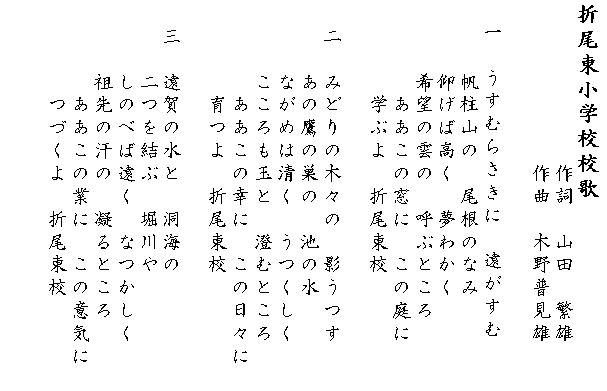 折尾東小学校校歌
作詞 山田 繁雄
作曲 木野普見雄
一 うすむらさきに 遠がすむ
帆柱山の 尾根のなみ
仰げば高く 夢わかく
希望の雲の 呼ぶところ
ああこの窓に この庭に
学ぶよ 折尾東校
二 みどりの木々の 影うつす
あの鷹の巣の 池の水
ながめは清く うつくしく
こころも玉と 澄むところ
ああこの幸に この日々に
育つよ 折尾東校
三 遠賀の水と 洞海の
二つを結ぶ 堀川や
しのべば遠く なつかしく
祖先の汗の 凝るところ
ああこの業に この意気に
つづくよ 折尾東校